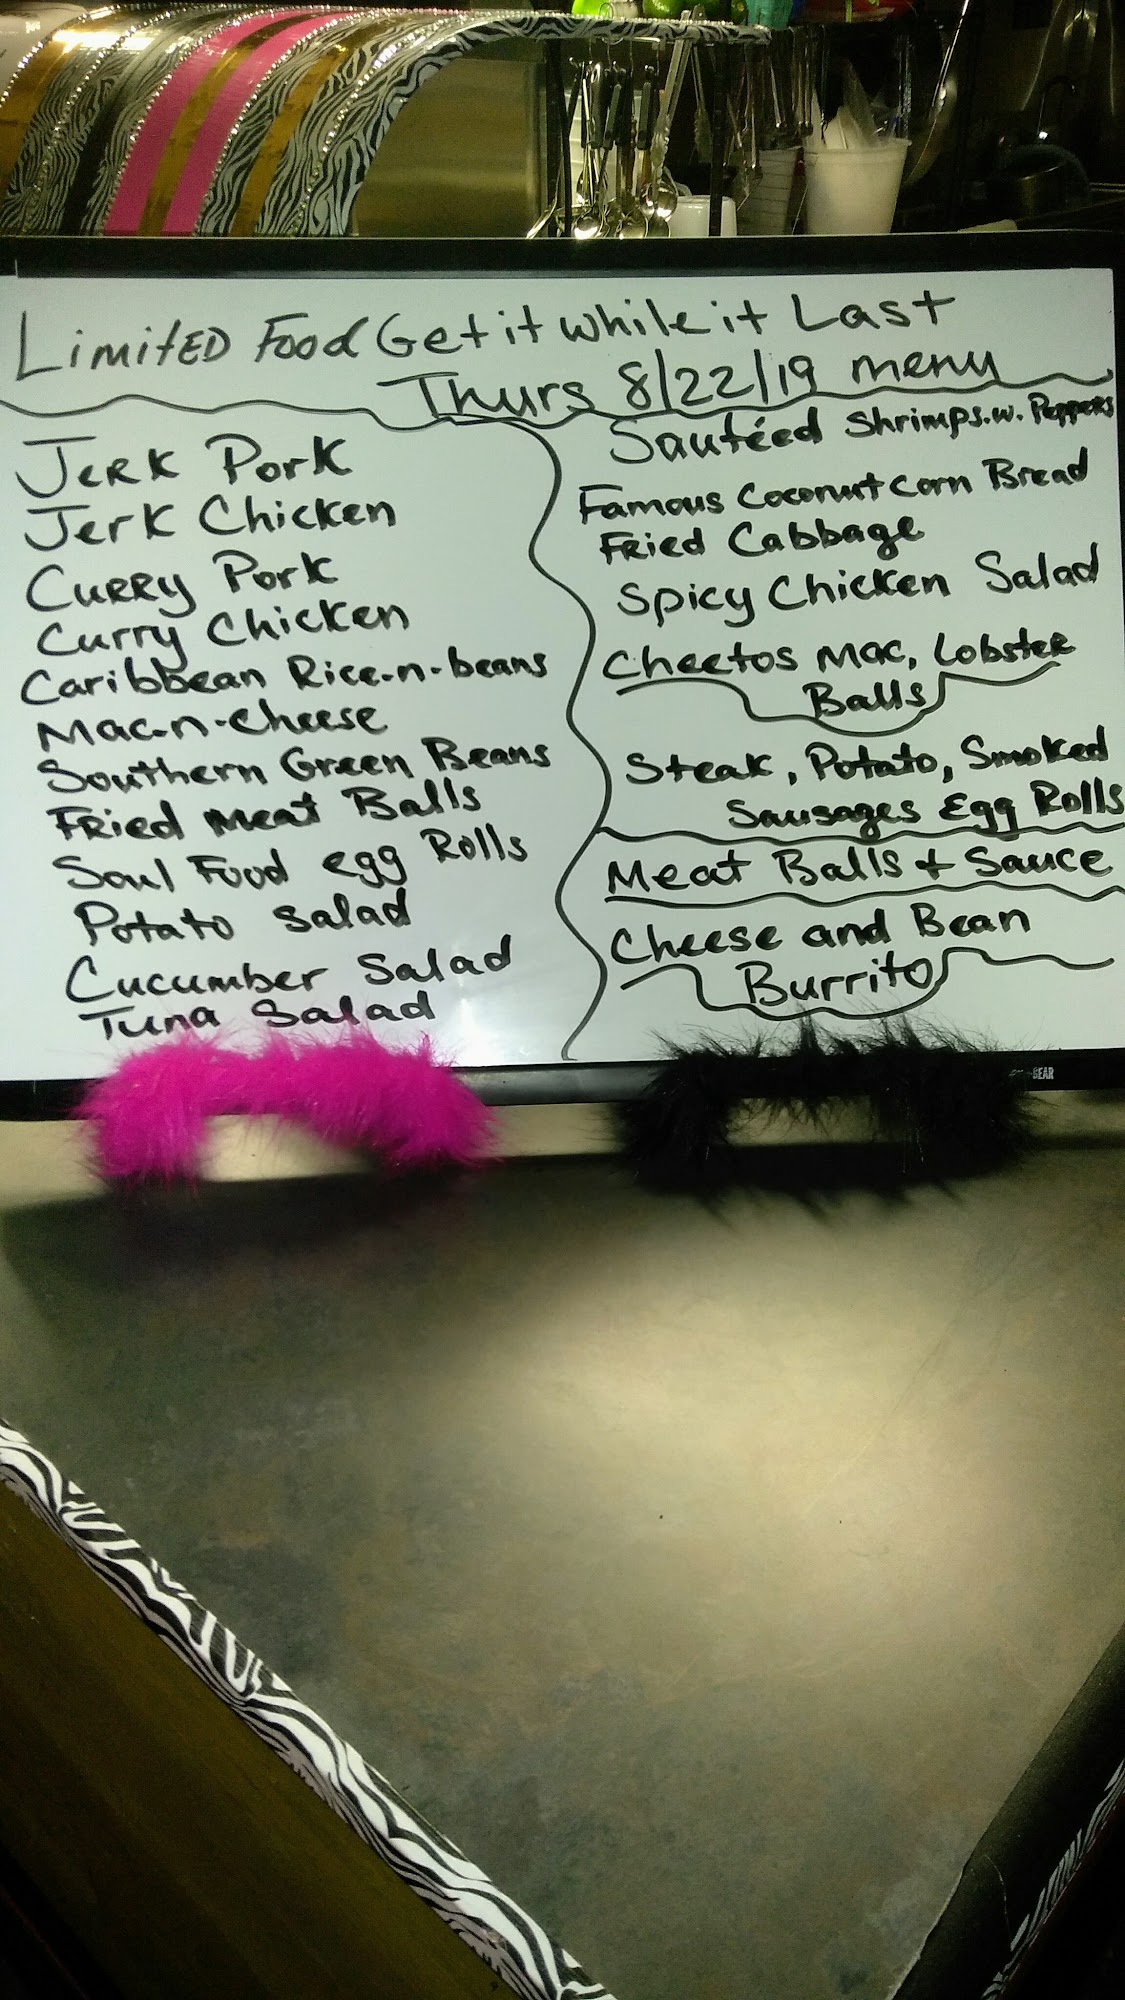 Limited Food Get it while it Last
Thurs 8/22/19 menu
Jerk Pork
Jerk Chicken
Curry Pork
Curry Chicken
Caribbean Rice-n-beans
Mac-n-cheese
Southern Green Beans
Fried Meat Balls
Soul Food egg Rolls
Potato Salad
Cucumber Salad
Tuna Salad
Sautéed Shrimps.w. Peppers
Famous Coconut Corn Bread
Fried Cabbage
Spicy Chicken Salad
Cheetos Mac, Lobster
Balls
Steak, Potato, Smoked
Sausages Egg Rolls
Meat Balls + Sauce
Cheese and Bean
Burrito